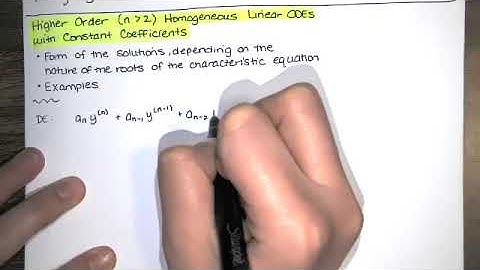 Higher Order (n > 2) Homogeneous Linear ODEs
with Constant Coefficients
• Form of the solutions, depending on the
nature of the roots of the characteristic equation
• Examples
DE: aₙ y⁽ⁿ⁾ + aₙ₋₁ y⁽ⁿ⁻¹⁾ + aₙ₋₂